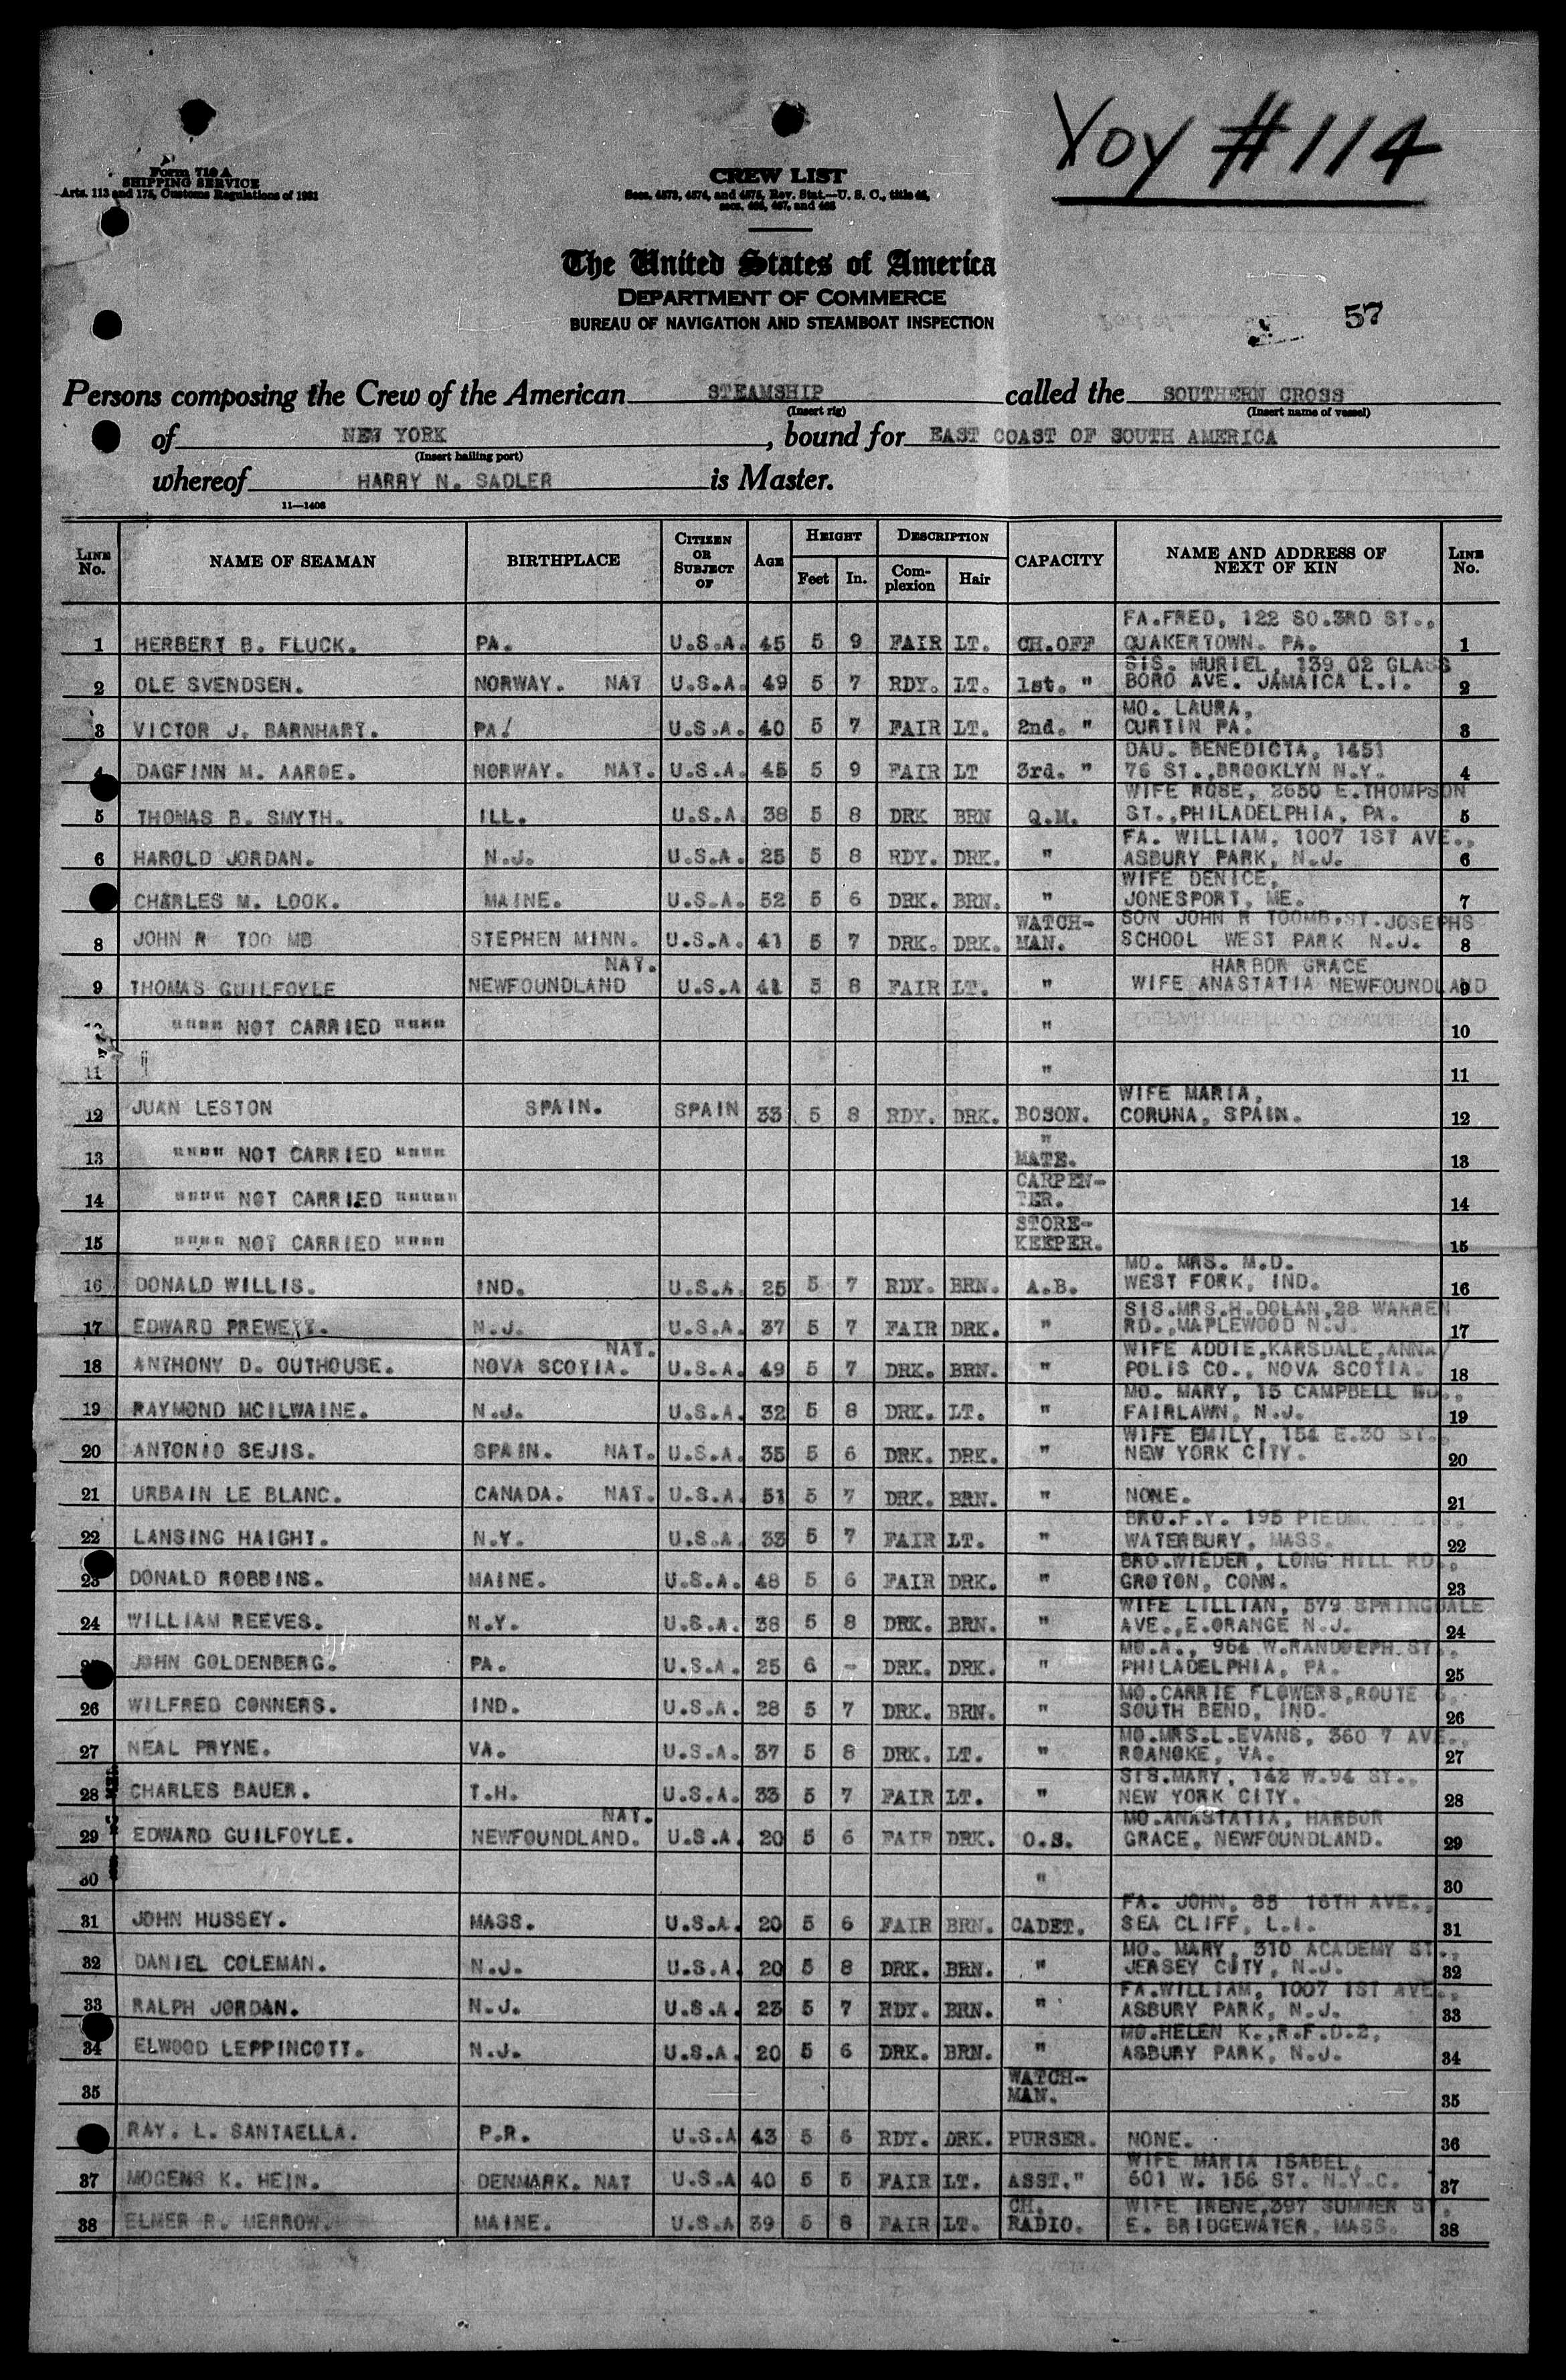 Voy #114
Form 710 A
SHIPPING SERVICE
Arts. 113 and 175, Customs Regulations of 1931
CREW LIST
Secs. 4573, 4574, and 4575, Rev. Stat.—U. S. C., title 46,
secs. 466, 467, and 468
The United States of America
DEPARTMENT OF COMMERCE
BUREAU OF NAVIGATION AND STEAMBOAT INSPECTION
57
Persons composing the Crew of the American STEAMSHIP called the SOUTHERN CROSS
(Insert rig) (Insert name of vessel)
of NEW YORK, bound for EAST COAST OF SOUTH AMERICA
(Insert hailing port)
whereof HARRY N. SADLER is Master.
11—1408
LINE No. NAME OF SEAMAN BIRTHPLACE CITIZEN OR SUBJECT OF AGE HEIGHT Feet In. DESCRIPTION Complexion Hair CAPACITY NAME AND ADDRESS OF NEXT OF KIN LINE No.
FA.FRED, 122 SO.3RD ST.,
1 HERBERT B. FLUCK. PA. U.S.A. 45 5 9 FAIR LT. CH.OFF QUAKERTOWN. PA. 1
SIS. MURIEL, 139 02 GLASS
2 OLE SVENDSEN. NORWAY. NAT U.S.A. 49 5 7 RDY. LT. 1st. " BORO AVE. JAMAICA L.I. 2
MO. LAURA,
3 VICTOR J. BARNHART. PA. U.S.A. 40 5 7 FAIR LT. 2nd. " CURTIN PA. 3
DAU. BENEDICTA, 1451
4 DAGFINN M. AAROE. NORWAY. NAT. U.S.A. 45 5 9 FAIR LT 3rd. " 76 ST.,BROOKLYN N.Y. 4
WIFE ROSE, 2650 E.THOMPSON
5 THOMAS B. SMYTH. ILL. U.S.A 38 5 8 DRK BRN Q.M. ST.,PHILADELPHIA, PA. 5
FA. WILLIAM, 1007 1ST AVE.,
6 HAROLD JORDAN. N.J. U.S.A. 25 5 8 RDY. DRK. " ASBURY PARK, N.J. 6
WIFE DENICE,
CHARLES M. LOOK. MAINE. U.S.A. 52 5 6 DRK. BRN. " JONESPORT, ME. 7
WATCH- SON JOHN R TOOMB,ST.JOSEPHS
8 JOHN R TOO MB STEPHEN MINN. U.S.A. 41 5 7 DRK. DRK. MAN. SCHOOL WEST PARK N.J. 8
NAT. HARBOR GRACE
9 THOMAS GUILFOYLE NEWFOUNDLAND U.S.A 41 5 8 FAIR LT. " WIFE ANASTATIA NEWFOUNDLAND 9
"""" NOT CARRIED """" " 10
11 " " 11
WIFE MARIA,
12 JUAN LESTON SPAIN. SPAIN 33 5 8 RDY. DRK. BOSON. CORUNA, SPAIN. 12
"
13 """" NOT CARRIED """" MATE. 13
CARPEN-
14 """" NOT CARRIED """"" TER. 14
STORE-
15 """" NOT CARRIED """" KEEPER. 15
MO. MRS. M.D.
16 DONALD WILLIS. IND. U.S.A. 25 5 7 RDY. BRN. A.B. WEST FORK, IND. 16
SIS.MRS.H.DOLAN,28 WARREN
17 EDWARD PREWETT. N.J. U.S.A. 37 5 7 FAIR DRK. " RD.,MAPLEWOOD N.J. 17
NAT. WIFE ADDIE,KARSDALE,ANNA
18 ANTHONY D. OUTHOUSE. NOVA SCOTIA. U.S.A. 49 5 7 DRK. BRN. " POLIS CO., NOVA SCOTIA. 18
MO. MARY, 15 CAMPBELL RD.,
19 RAYMOND MCILWAINE. N.J. U.S.A. 32 5 8 DRK. LT. " FAIRLAWN, N.J. 19
WIFE EMILY, 154 E.30 ST.,
20 ANTONIO SEJIS. SPAIN. NAT. U.S.A. 35 5 6 DRK. DRK. " NEW YORK CITY. 20
21 URBAIN LE BLANC. CANADA. NAT. U.S.A. 51 5 7 DRK. BRN. " NONE. 21
BRO.F.Y. 195
22 LANSING HAIGHT. N.Y. U.S.A. 33 5 7 FAIR LT. " WATERBURY, MASS. 22
BRO.WIEDER, LONG HILL RD.,
23 DONALD ROBBINS. MAINE. U.S.A. 48 5 6 FAIR DRK. " GROTON, CONN. 23
WIFE LILLIAN, 579 SPRINGDALE
24 WILLIAM REEVES. N.Y. U.S.A. 38 5 8 DRK. BRN. " AVE.,E.ORANGE N.J. 24
MO.A., 964 W.RANDOLPH ST.,
JOHN GOLDENBERG. PA. U.S.A. 25 6 - DRK. DRK. " PHILADELPHIA, PA. 25
MO.CARRIE FLOWERS,ROUTE
26 WILFRED CONNERS. IND. U.S.A. 28 5 7 DRK. BRN. " SOUTH BEND, IND. 26
MO.MRS.L.EVANS, 360 7 AVE.,
27 NEAL PRYNE. VA. U.S.A. 37 5 8 DRK. LT. " ROANOKE, VA. 27
SIS.MARY, 142 W.94 ST.,
28 CHARLES BAUER. T.H. U.S.A. 33 5 7 FAIR LT. " NEW YORK CITY. 28
NAT. MO.ANASTATIA, HARBOR
29 EDWARD GUILFOYLE. NEWFOUNDLAND. U.S.A. 20 5 6 FAIR DRK. O.S. GRACE, NEWFOUNDLAND. 29
30 " 30
FA. JOHN, 85 16TH AVE.,
31 JOHN HUSSEY. MASS. U.S.A. 20 5 6 FAIR BRN. CADET. SEA CLIFF, L.I. 31
MO. MARY, 310 ACADEMY ST.,
32 DANIEL COLEMAN. N.J. U.S.A. 20 5 8 DRK. BRN. " JERSEY CITY, N.J. 32
FA.WILLIAM, 1007 1ST AVE.,
33 RALPH JORDAN. N.J. U.S.A. 23 5 7 RDY. BRN. " ASBURY PARK, N.J. 33
MO.HELEN K.,R.F.D.2,
34 ELWOOD LEPPINCOTT. N.J. U.S.A. 20 5 6 DRK. BRN. " ASBURY PARK, N.J. 34
WATCH-
35 MAN. 35
RAY. L. SANTAELLA. P.R. U.S.A 43 5 6 RDY. DRK. PURSER. NONE. 36
WIFE MARIA ISABEL,
37 MOGENS K. HEIN. DENMARK. NAT U.S.A 40 5 5 FAIR LT. ASST." 601 W. 156 ST. N.Y.C. 37
CH. WIFE IRENE,397 SUMMER ST.
38 ELMER R. MERROW. MAINE. U.S.A 39 5 8 FAIR LT. RADIO. E. BRIDGEWATER, MASS. 38